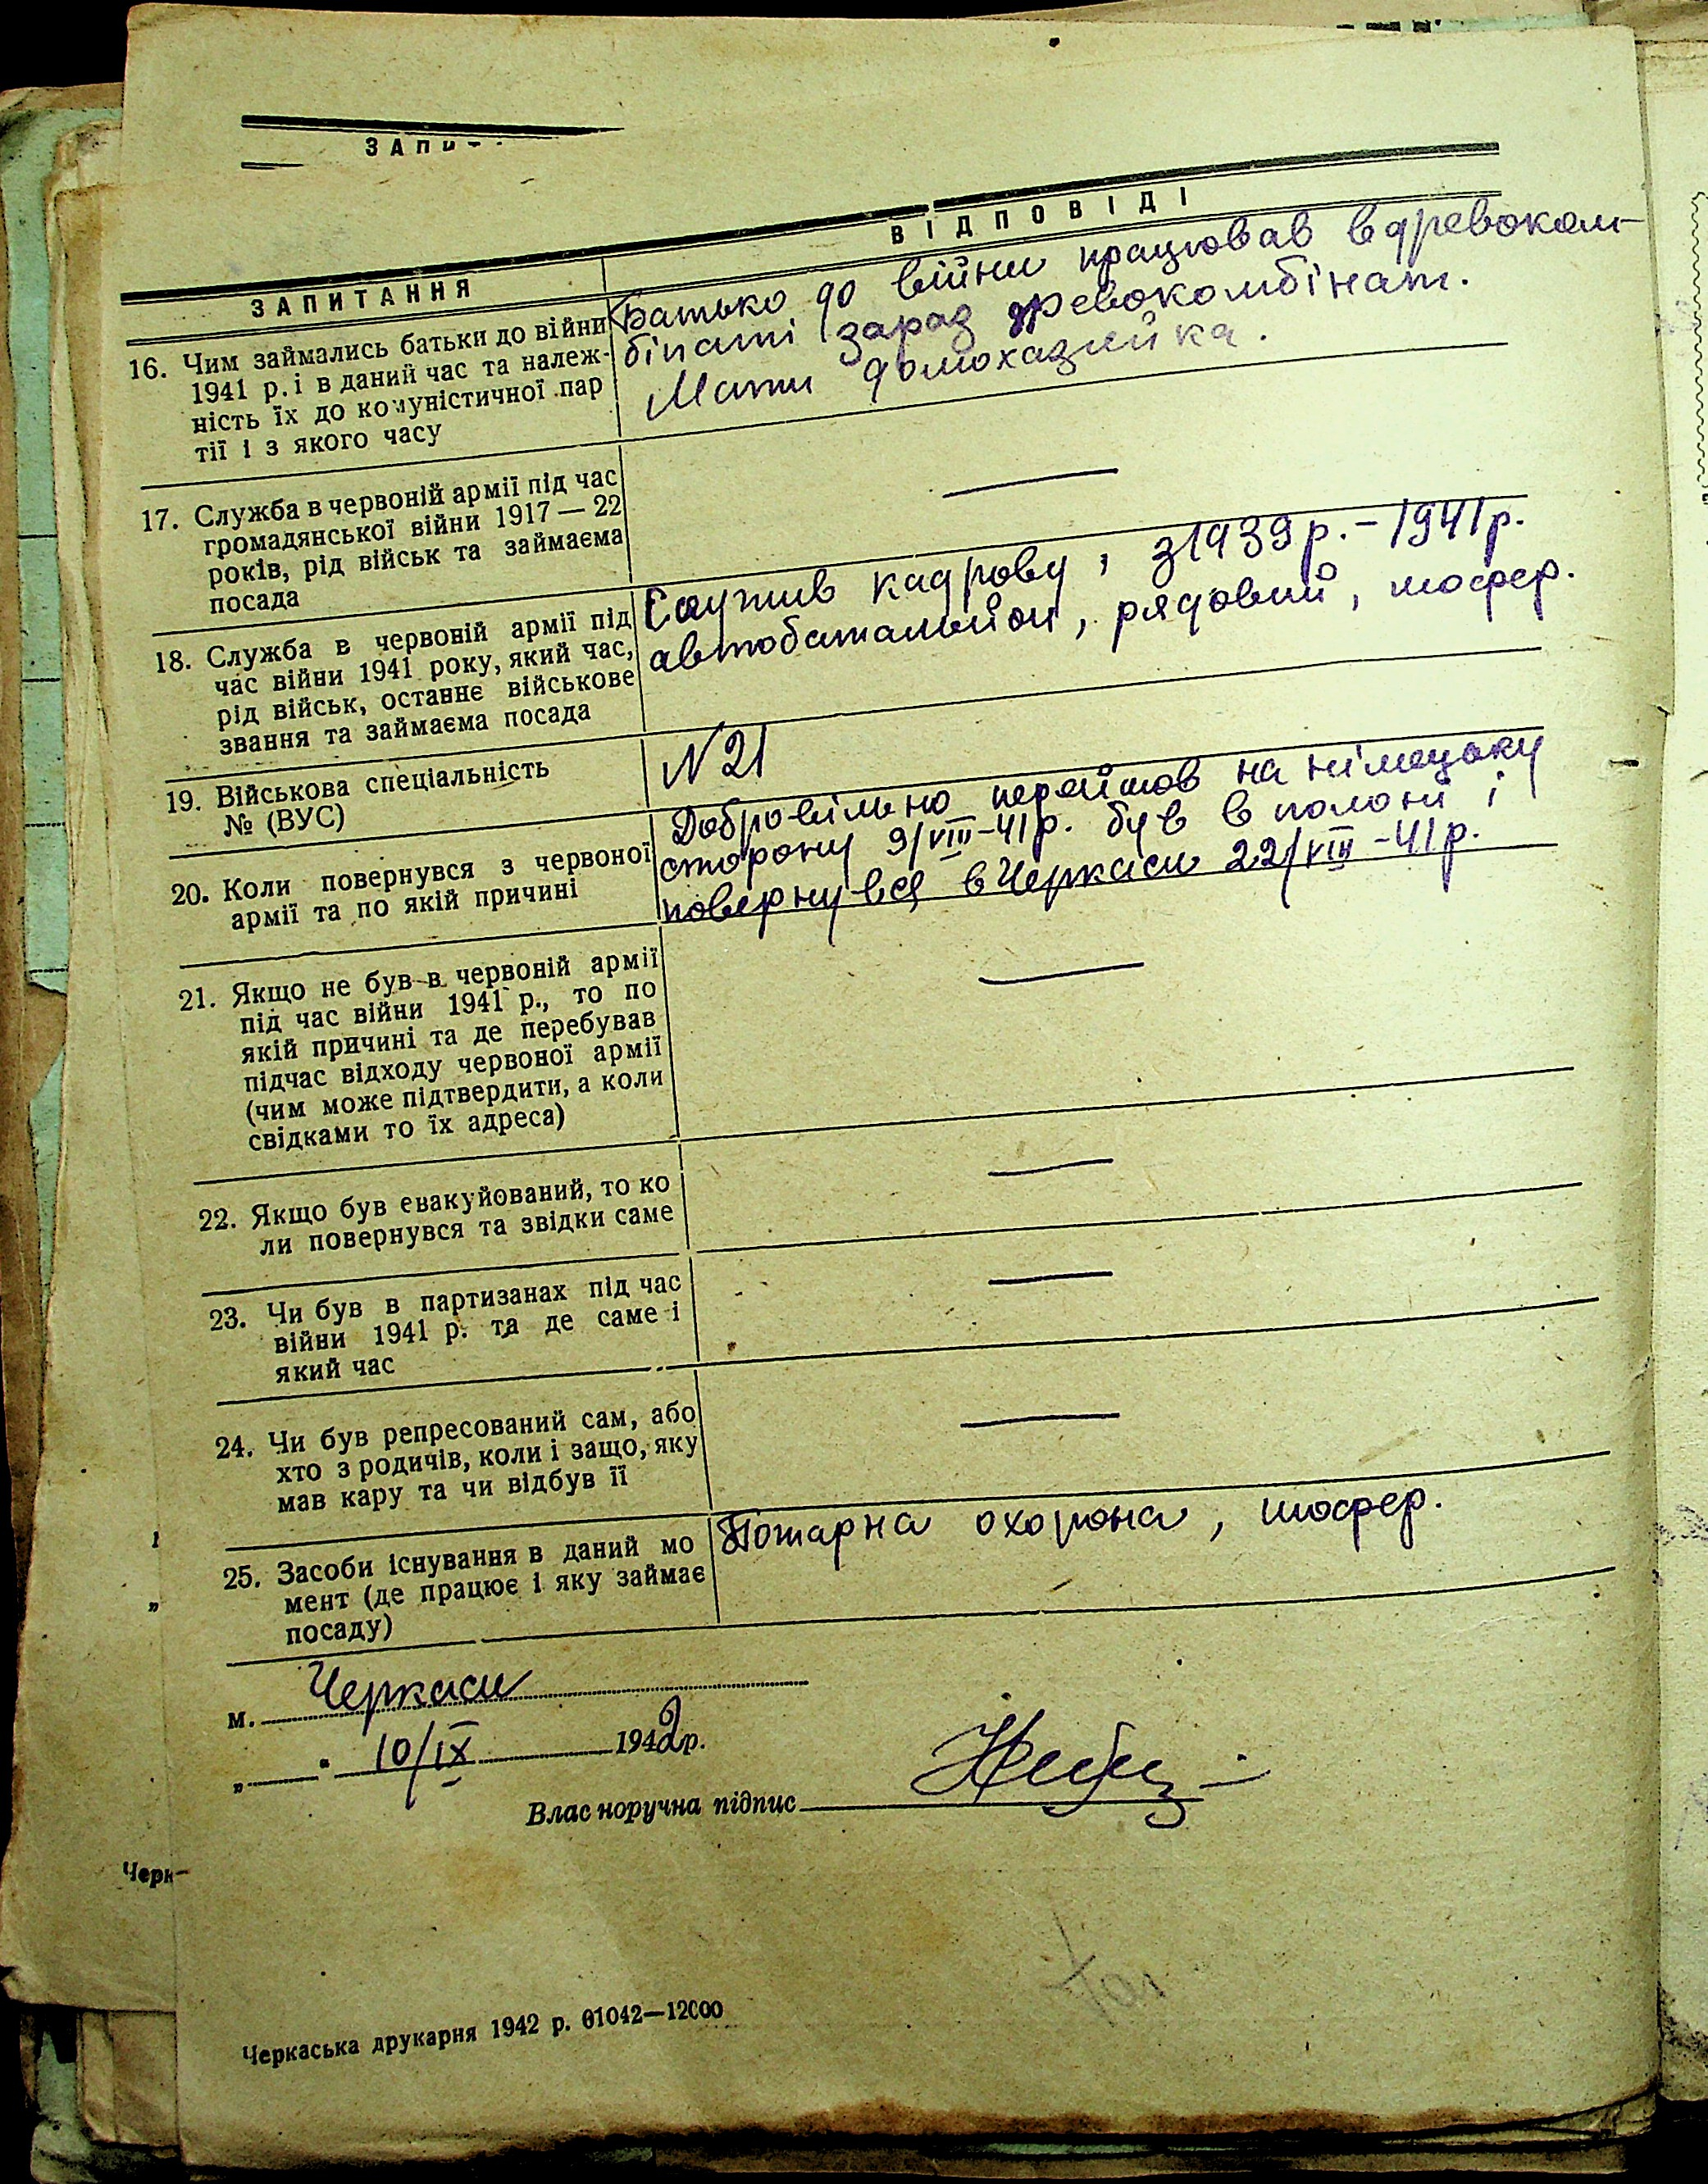 ЗАПИ
ЗАПИТАННЯ
ВІДПОВІДІ
16. Чим займались батьки до війни
1941 р. і в даний час та належ-
ність їх до комуністичної пар
тії і з якого часу
Батько до війни працював в древоком-
бінаті зараз древокомбінат.
Мати домохазяйка.
17. Служба в червоній армії під час
громадянської війни 1917 — 22
років, рід військ та займаєма
посада
—
18. Служба в червоній армії під
час війни 1941 року, який час,
рід військ, останнє військове
звання та займаєма посада
Служив кадрову, з 1939 р. - 1941 р.
автобатальйон, рядовий, шофер.
19. Військова спеціальність
№ (ВУС)
N 21
20. Коли повернувся з червоної
армії та по якій причині
Добровільно перейшов на німецьку
сторону 9/VIII-41 р. був в полоні і
повернувся в Черкаси 22/VIII-41 р.
21. Якщо не був в червоній армії
під час війни 1941 р., то по
якій причині та де перебував
підчас відходу червоної армії
(чим може підтвердити, а коли
свідками то їх адреса)
—
22. Якщо був евакуйований, то ко
ли повернувся та звідки саме
—
23. Чи був в партизанах під час
війни 1941 р. та де саме і
який час
—
24. Чи був репресований сам, або
хто з родичів, коли і защо, яку
мав кару та чи відбув її
—
25. Засоби існування в даний мо
мент (де працює і яку займає
посаду)
Пожарна охорона, шофер.
м. Черкаси
„ " 10/IX 1942 р.
Власноручна підпис
Черк
Черкаська друкарня 1942 р. 01042—12000